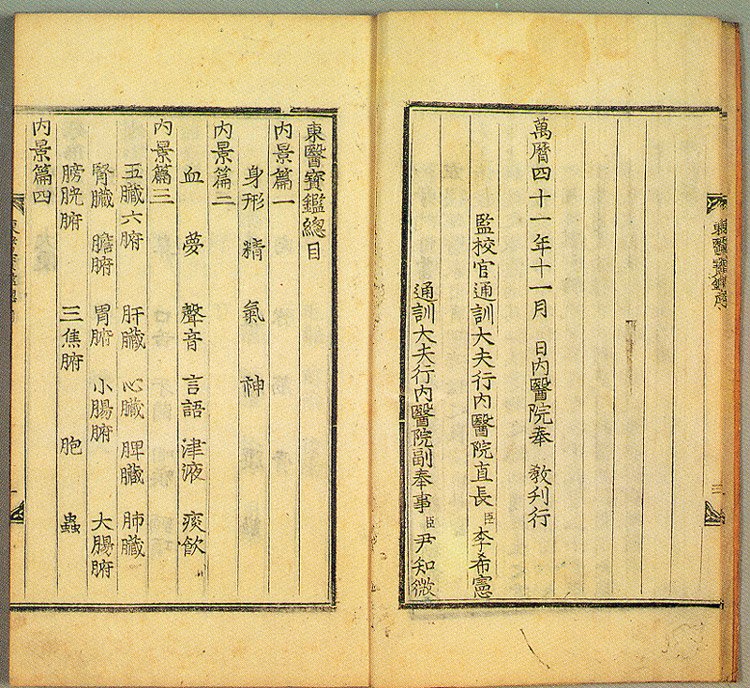 萬曆四十一年十一月 日內醫院奉 敎刊行
監校官通訓大夫行內醫院直長臣李希憲
通訓大夫行內醫院副奉事臣尹知微
東醫寶鑑總目
內景篇一
身形 精 氣 神
內景篇二
血 夢 聲音 言語 津液 痰飮
內景篇三
五臟六腑 肝臟 心臟 脾臟 肺臟
腎臟 膽腑 胃腑 小腸腑 大腸腑
膀胱腑 三焦腑 胞 蟲
內景篇四
東醫寶鑑序
三